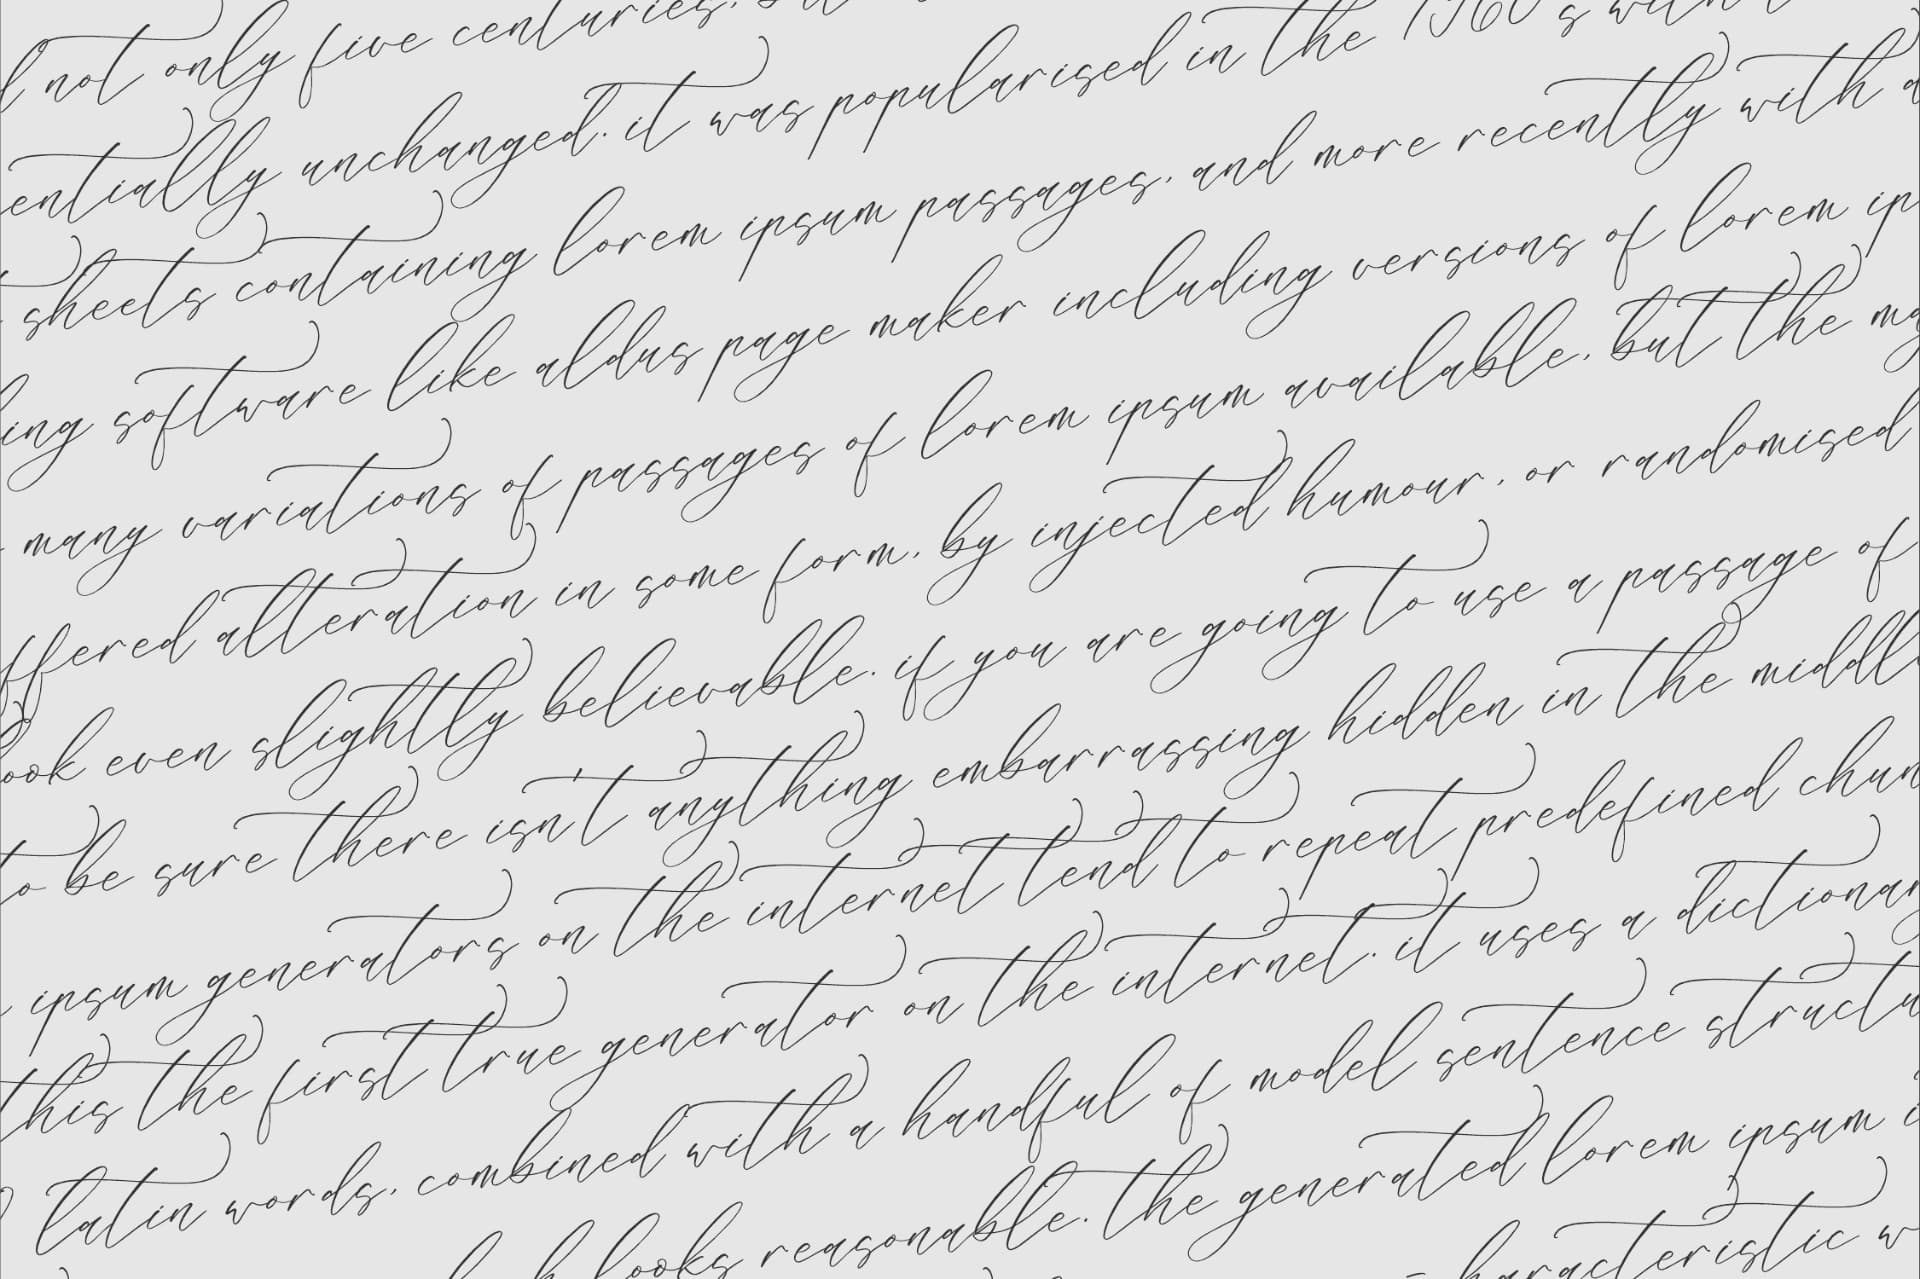 not only five centuries,
entially unchanged. it was popularised in the 1960's with
sheets containing lorem ipsum passages, and more recently with
ing software like aldus page maker including versions of lorem ip
many variations of passages of lorem ipsum available, but the ma
ffered alteration in some form, by injected humour, or randomised
ook even slightly believable. if you are going to use a passage of
to be sure there isn't anything embarrassing hidden in the middl
ipsum generators on the internet tend to repeat predefined chun
this the first true generator on the internet. it uses a dictionar
latin words, combined with a handful of model sentence structu
looks reasonable. the generated lorem ipsum i
haracteristic w